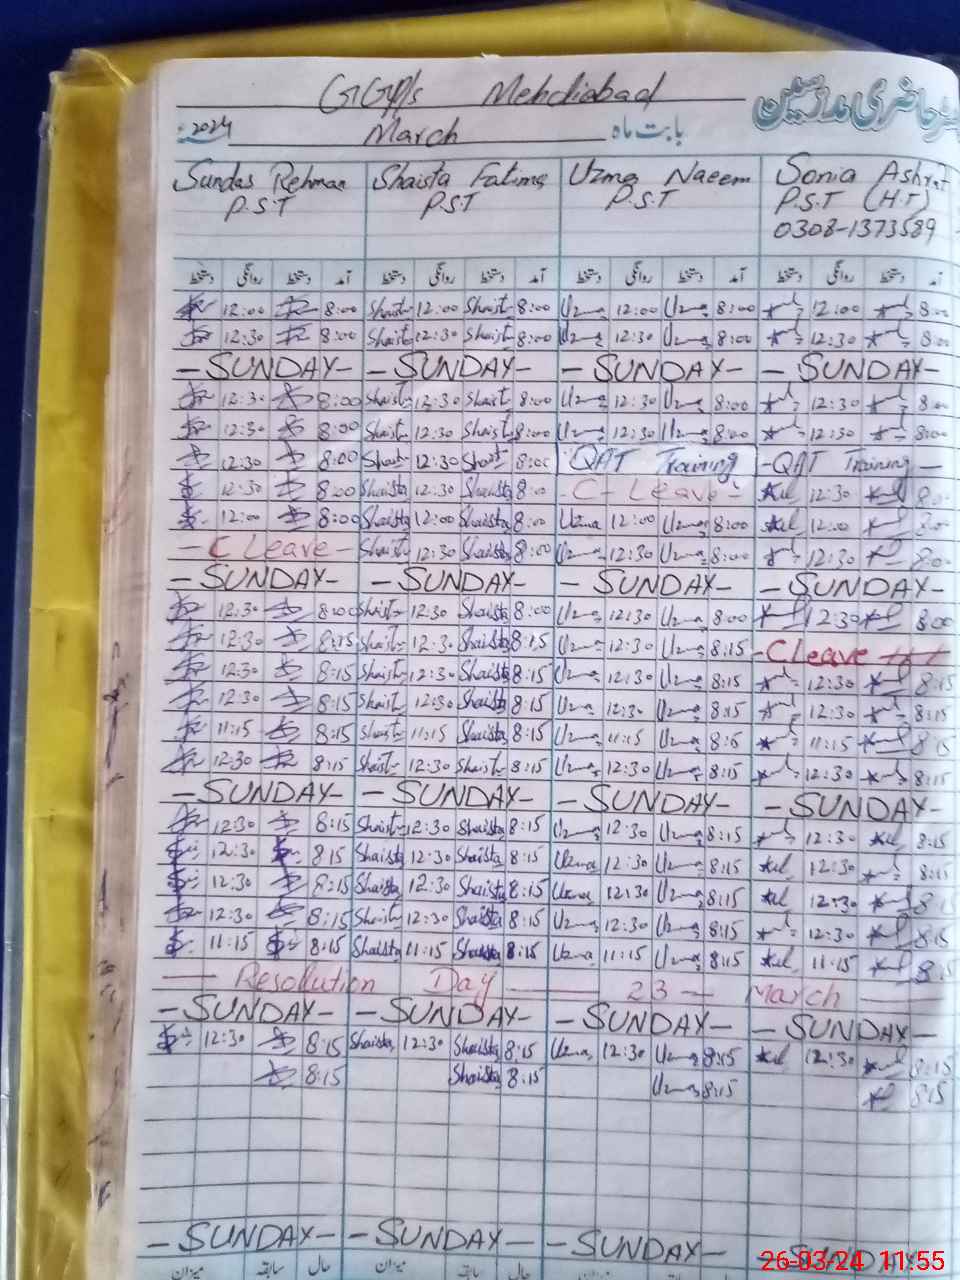 GGPS Mehdiabad
حاضری مدرسین
2024 March بابت ماہ
Sundas Rehman Shaista Fatima Uzma Naeem Sonia Ashraf
P.S.T P.S.T P.S.T P.S.T (H.T)
0308-1373589
دستخط روانگی دستخط آمد دستخط روانگی دستخط آمد دستخط روانگی دستخط آمد دستخط روانگی دستخط آمد
12:00 8:00 Shaist 12:00 Shaist 8:00 Uzma 12:00 Uzma 8:00 12:00 8:00
12:30 8:00 Shaist 12:30 Shaist 8:00 Uzma 12:30 Uzma 8:00 12:30 8:00
-SUNDAY- -SUNDAY- -SUNDAY- -SUNDAY-
12:30 8:00 Shaist 12:30 Shaist 8:00 Uzma 12:30 Uzma 8:00 12:30 8:00
12:30 8:00 Shaist 12:30 Shaist 8:00 Uzma 12:30 Uzma 8:00 12:30 8:00
12:30 8:00 Shaist 12:30 Shaist 8:00 QAT Training -QAT Training-
12:30 8:00 Shaista 12:30 Shaista 8:00 -C-Leave- 12:30 8:00
12:00 8:00 Shaista 12:00 Shaista 8:00 Uzma 12:00 Uzma 8:00 12:00 8:00
-C Leave- Shaist 12:30 Shaista 8:00 Uzma 12:30 Uzma 8:00 12:30 8:00
-SUNDAY- -SUNDAY- -SUNDAY- -SUNDAY-
12:30 8:00 Shaist 12:30 Shaista 8:00 Uzma 12:30 Uzma 8:00 12:30 8:00
12:30 8:15 Shaist 12:30 Shaista 8:15 Uzma 12:30 Uzma 8:15 -C leave
12:30 8:15 Shaist 12:30 Shaista 8:15 Uzma 12:30 Uzma 8:15 12:30 8:15
12:30 8:15 Shaist 12:30 Shaista 8:15 Uzma 12:30 Uzma 8:15 12:30 8:15
11:15 8:15 Shaist 11:15 Shaista 8:15 Uzma 11:15 Uzma 11:15 8:15
12:30 8:15 Shaist 12:30 Shaist 8:15 Uzma 12:30 Uzma 8:15 12:30 8:15
-SUNDAY- -SUNDAY- -SUNDAY- -SUNDAY-
12:30 8:15 Shaist 12:30 Shaista 8:15 Uzma 12:30 Uzma 8:15 12:30 8:15
12:30 8:15 Shaista 12:30 Shaista 8:15 Uzma 12:30 Uzma 8:15 12:30 8:15
12:30 8:15 Shaista 12:30 Shaista 8:15 Uzma 12:30 Uzma 8:15 12:30 8:15
12:30 8:15 Shaist 12:30 Shaista 8:15 Uzma 12:30 Uzma 8:15 12:30 8:15
11:15 8:15 Shaista 11:15 Shaista 8:15 Uzma 11:15 Uzma 8:15 11:15 8:15
Resolution Day 23 March
-SUNDAY- -SUNDAY- -SUNDAY- -SUNDAY-
12:30 8:15 Shaista 12:30 Shaista 8:15 Uzma 12:30 Uzma 8:15 12:30 8:15
8:15 Shaista 8:15 Uzma 8:15 8:15
-SUNDAY- -SUNDAY- -SUNDAY- -SUNDAY-
میزان سابقہ حال میزان سابقہ حال میزان سابقہ حال
26-03-24 11:55